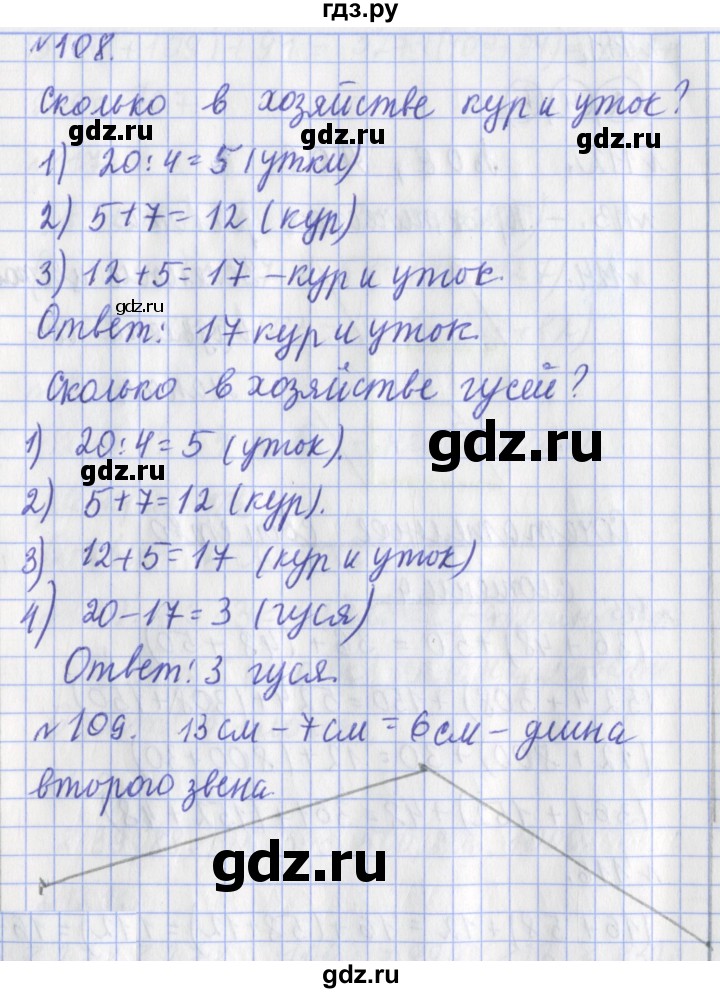 гдз.ру
№108.
Сколько в хозяйстве кур и уток?
gdz.ru
gdz.ru
1) 20:4=5 (утки)
2) 5+7=12 (кур)
3) 12+5=17 - кур и уток.
gdz.ru
Ответ: 17 кур и уток.
Сколько в хозяйстве гусей?
1) 20:4=5 (уток).
gdz.ru
gdz.ru
2) 5+7=12 (кур).
3) 12+5=17 (кур и уток)
4) 20-17=3 (гуся)
Ответ: 3 гуся.
№109. 13см-7см=6см-длина
второго звена
gdz.ru
gdz.ru